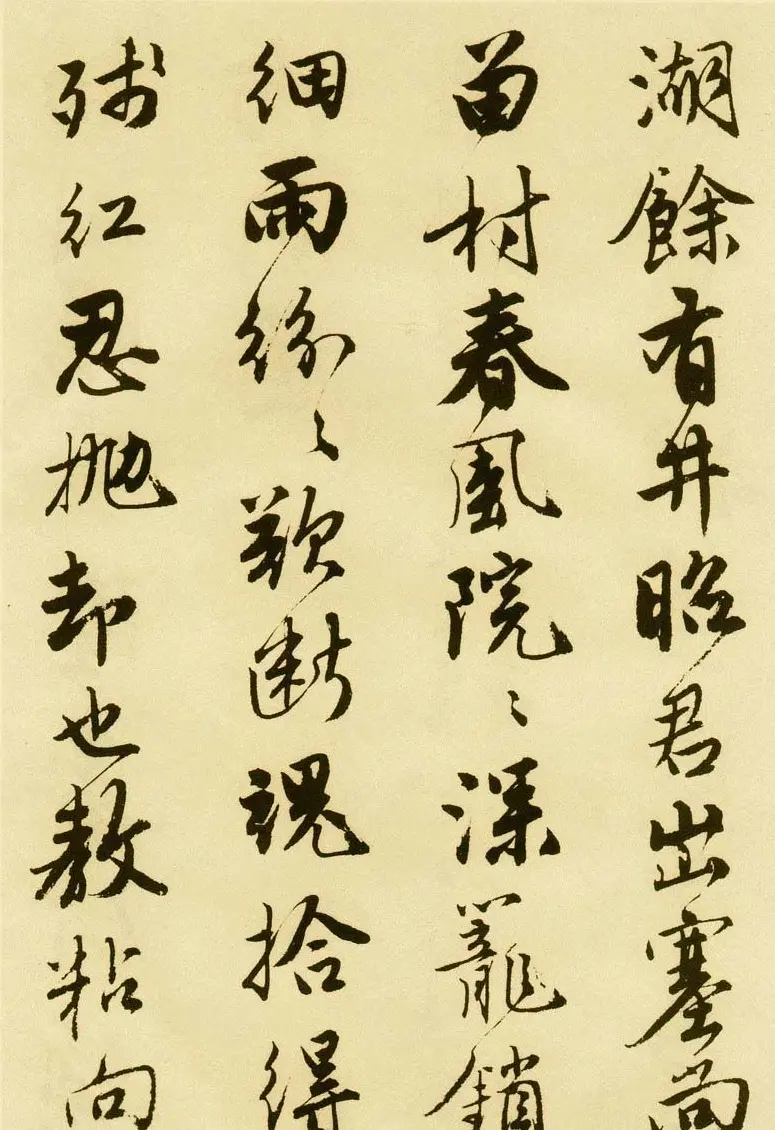 湖餘有井昭君出塞尚
留村春風院々深籠鎖
細雨紛々欲斷魂拾得
殘紅忍拋却也教粘向